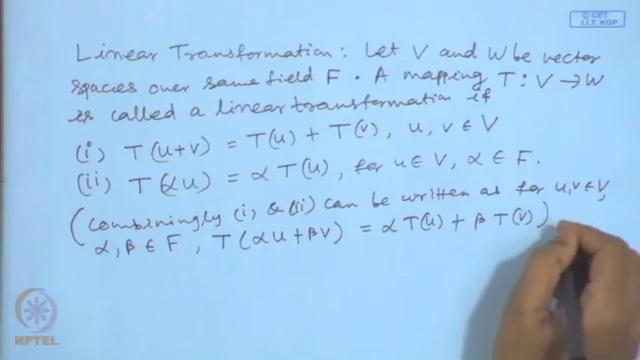 © CET
I.I.T. KGP
Linear Transformation: Let V and W be vector
spaces over same field F. A mapping T: V → W
is called a linear transformation if
(i) T(u+v) = T(u) + T(v), u, v ∈ V
(ii) T(αu) = α T(u), for u ∈ V, α ∈ F.
(Combiningly (i) & (ii) can be written as for u, v ∈ V,
α, β ∈ F, T(αu + βv) = α T(u) + β T(v))
NPTEL